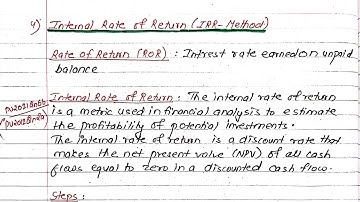 4) Internal Rate of Return (IRR-Method)
Rate of Return (ROR) : Intrest rate earned on unpaid
balance
Internal Rate of Return : The internal rate of return
is a metric used in financial analysis to estimate
the profitability of potential investments.
The internal rate of return is a discount rate that
makes the net present value (NPV) of all cash
flows equal to zero in a discounted cash flow.
Steps :